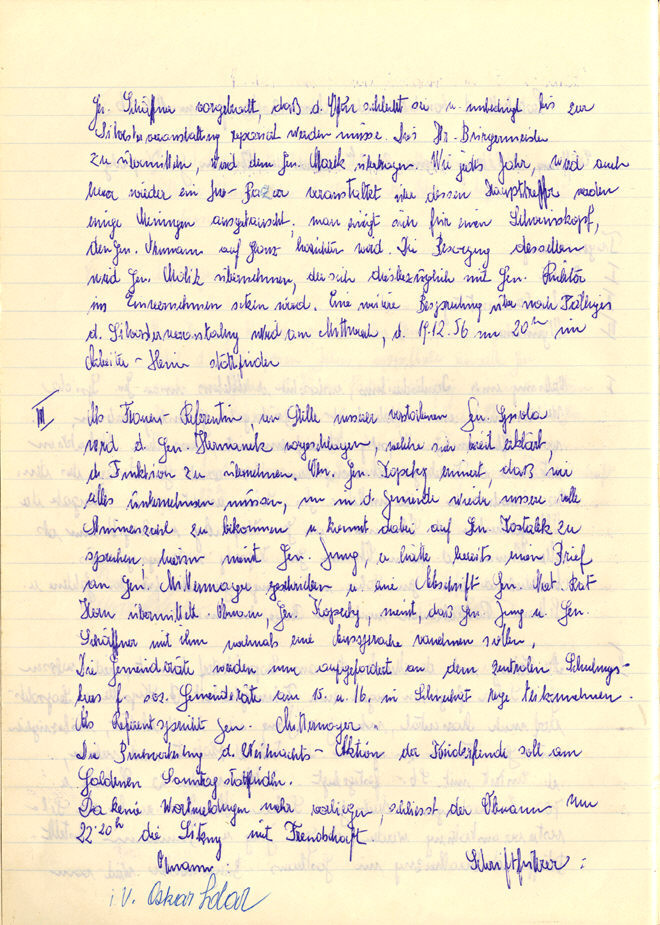 Gen. Schäffner vorgebracht, daß d. Ofen schlecht sei u. unbedingt bis zur
Silvesterveranstaltung repariert werden müsse. Dies Hr. Bürgermeister
zu übermitteln, wird dem Gen. Marek übertragen. Wie jedes Jahr, wird auch
heuer wieder ein veranstaltet über dessen Haupttreffer werden
einige Meinungen ausgetauscht, man einigt sich für einen Schweinskopf,
den Gen. auf Glanz herrichten wird. Die Besorgung desselben
wird Gen. Molik übernehmen, der sich diesbezüglich mit Gen.
ins Einvernehmen setzen wird. Eine weitere Besprechung über noch
d. Silvesterveranstaltung wird am Mittwoch, d. 19.12.56 um 20 h im
Arbeiter-Heim stattfinden
III Als Frauen Referentin, an Stelle unserer verstorbenen Gen.
wird d. Gen. Hermanek vorgeschlagen, welche sich bereit erklärt,
d. Funktion zu übernehmen. Obm. Gen. Kopecky erinnert, daß wir
alles unternehmen müssen, um in d. Gemeinde wieder unsere volle
zu bekommen u. kommt dabei auf Gen. Kostalek zu
sprechen, hierin meint Gen. Jung, er hätte bereits einen Brief
an Gen. Mittermayer geschrieben u. eine Abschrift Gen. Rat
Horn übermittelt. Obmann, Gen. Kopecky, meint, daß Gen. Jung u. Gen.
Schäffner mit ihm nochmals eine Aussprache vornehmen sollen.
Die Gemeinderäte werden nun aufgefordert an dem zentralen Schulungs-
kurs f. soz. Gemeinderäte am 15. u. 16. in Schwechat rege teilzunehmen.
Als Referent spricht Gen. Mittermayer.
Die d. Weihnachts-Aktion der Kinderfreunde soll am
Goldenen Sonntag stattfinden.
Da keine Wortmeldungen mehr vorliegen, schliesst der Obmann um
22.20 h die Sitzung mit Freundschaft
Obmann: Schriftführer:
i.V. Oskar